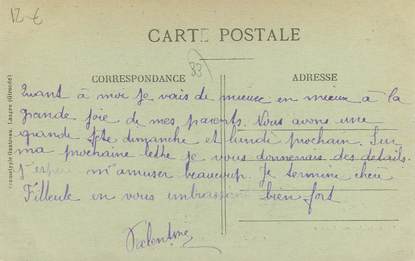 12-€
CARTE POSTALE
33
CORRESPONDANCE
ADRESSE
Quant à moi je vais de mieux en mieux à la
grande joie de mes parents. Nous avons une
grande fête dimanche et lundi prochain. Sur
ma prochaine lettre je vous donnerais des détails.
J'espère m'amuser beaucoup. Je termine chère
Filleule en vous embrassant bien fort
Valentine
Phototypie Gautreau, Langon (Gironde)